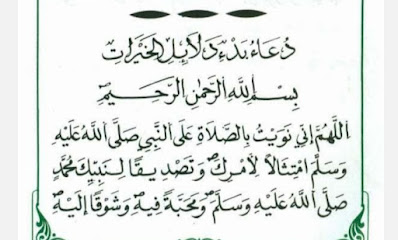 دُعَاءُ بَدْءِ دَلَائِلِ الْخَيْرَاتِ
بِسْمِ اللَّهِ الرَّحْمٰنِ الرَّحِيْمِ
اَللَّهُمَّ إِنِّي نَوَيْتُ بِالصَّلَاةِ عَلَى النَّبِيِّ صَلَّى اللَّهُ عَلَيْهِ
وَسَلَّمَ امْتِثَالًا لِأَمْرِكَ وَتَصْدِيقًا لِنَبِيِّكَ مُحَمَّدٍ
صَلَّى اللَّهُ عَلَيْهِ وَسَلَّمَ وَمَحَبَّةً فِيهِ وَشَوْقًا إِلَيْهِ